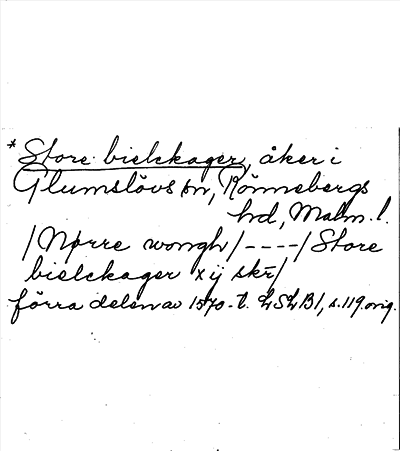 *Store bielckager, åker i
Glumslövs sn, Rönnebergs
hd, Malm. l.
/Nørre wongh/----/Store
bielckager xij skr/
förra delen av 1570-t. LSLB1, s. 119 orig.